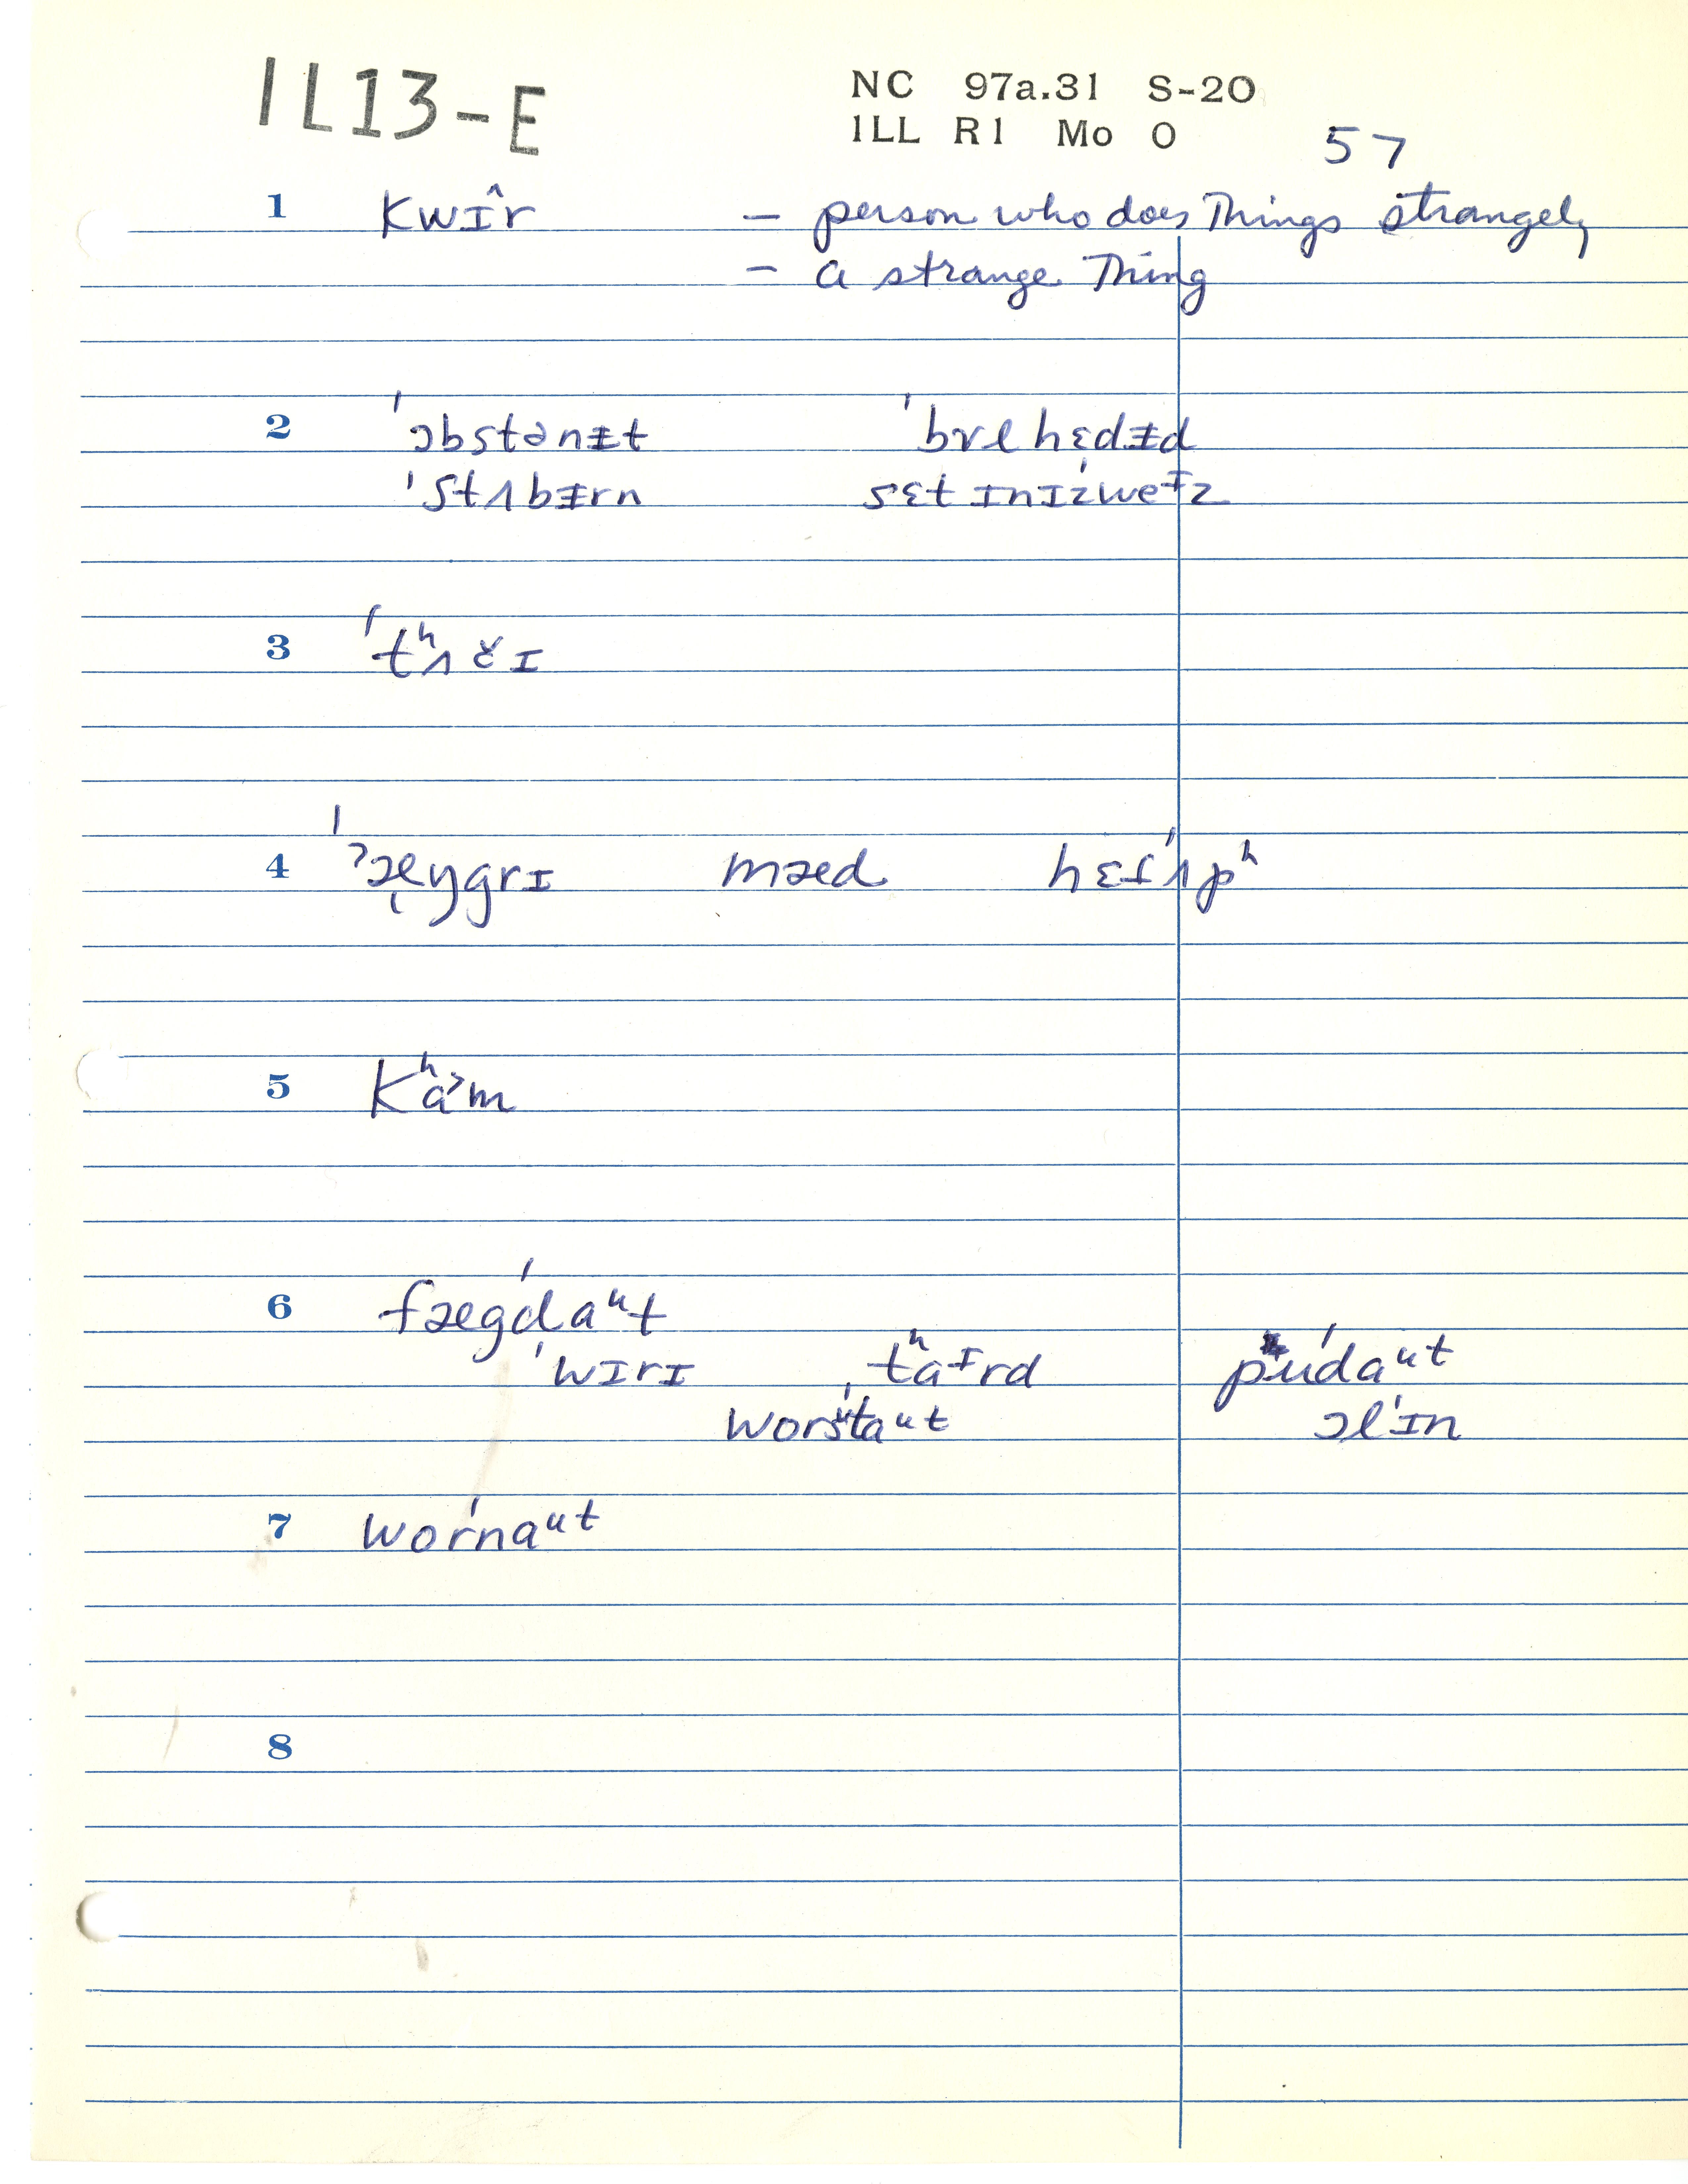 IL13-E
NC 97a.31 S-20
ILL R1 Mo O
57
1 kwɪ̂r — person who does Things strangely
— a strange Thing
2 ˈɔbstənɨt ˈbʊlhɛdɨd
ˈstʌbɨrn sɛt ɪnɪzˈweᶤz
3 ˈtʰʌčɪ
4 ˈʔæŋgrɪ mæd hɛtˈʌpʰ
5 kʰa˃m
6 fægˈdaᵘt
ˈwɪrɪ ˌtʰaᶤrd puˈdaᵘt
worˈstaᵘt ɔlˈɪn
7 worˈnaᵘt
8